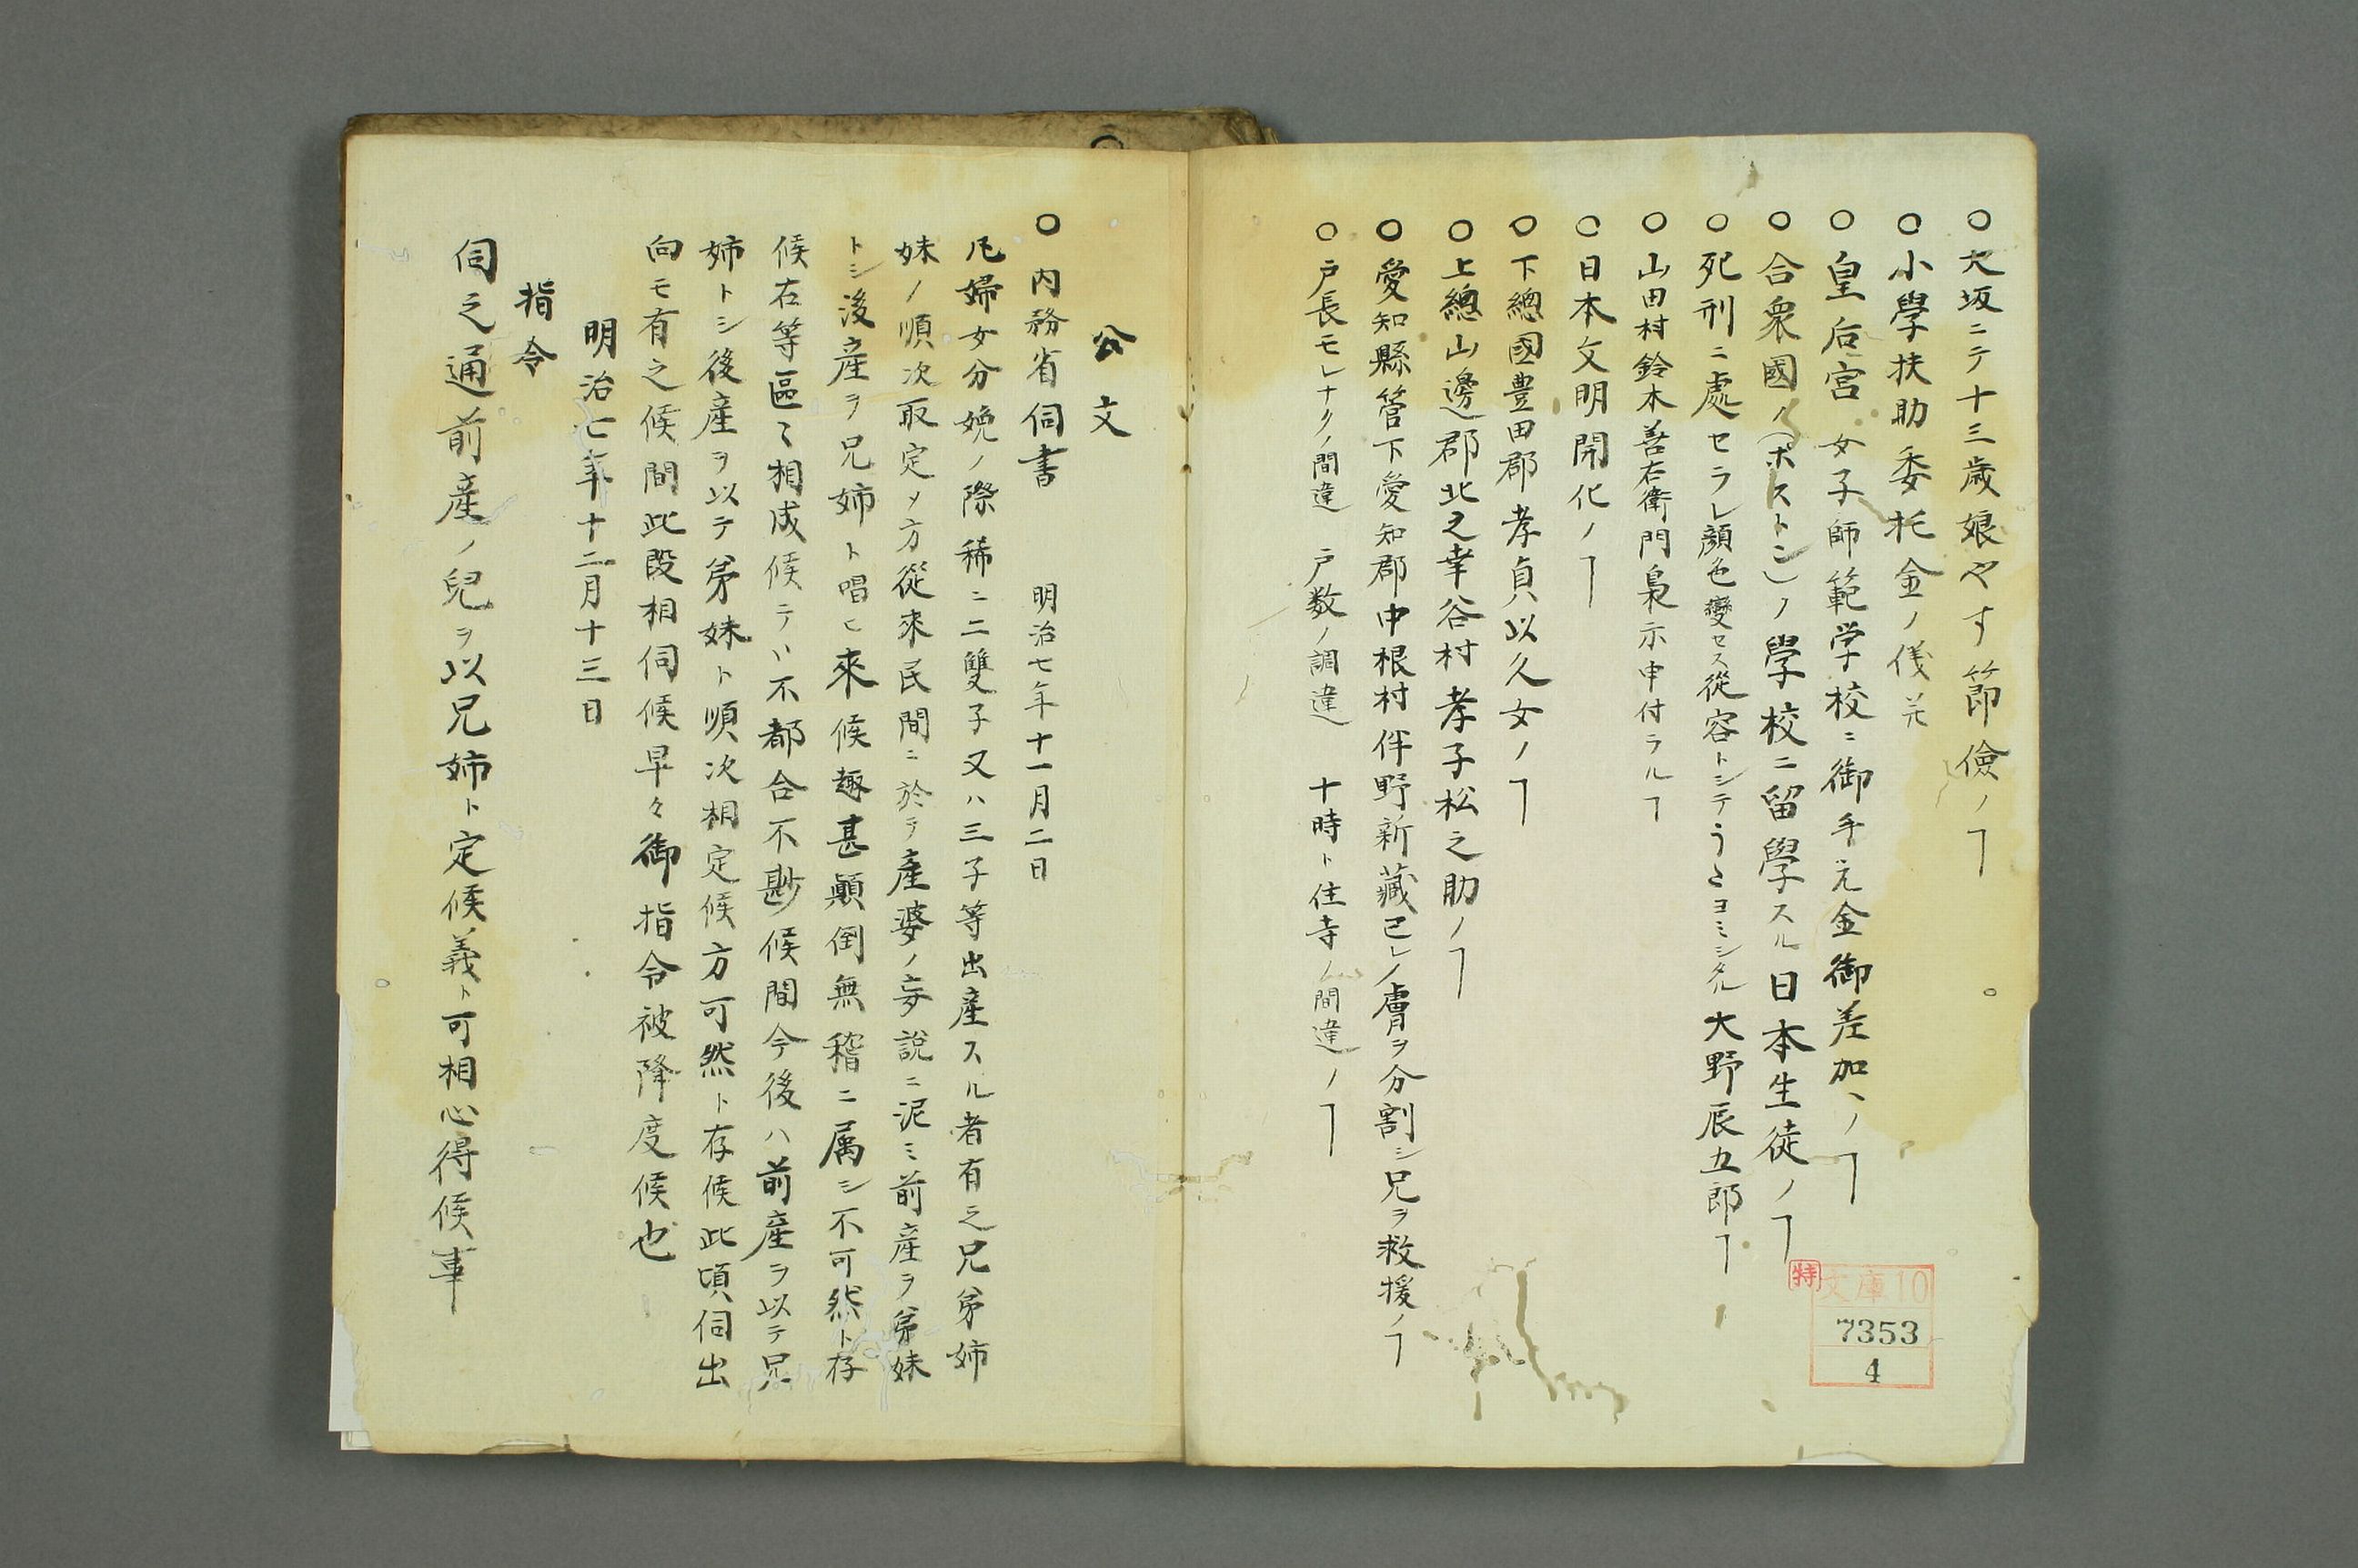 ○大坂ニテ十三歳娘やす節儉ノヿ
○小學扶助委托金ノ儀
○皇后宮 女子師範学校ニ御手元金御差加ヘノヿ
○合衆國(ボストン)ノ學校ニ留學スル日本生徒ノヿ
○死刑ニ處セラレ顔色變セス從容トシテうたヨミシタル大野辰五郎ヿ
○山田村鈴木善右衛門梟示申付ラルヿ
○日本文明開化ノヿ
○下總國豊田郡孝貞以久女ノヿ
○上總山邊郡北之幸谷村孝子松之助ノヿ
○愛知縣管下愛知郡中根村伴野新藏己レノ膚ヲ分割シ兄ヲ救援ノヿ
○戸長モレナクノ間違 戸数ノ調違 十時ト住寺ノ間違ノヿ
特
文庫10
7353
4
公文
○内務省伺書 明治七年十一月二日
凡婦女分娩ノ際稀ニ二雙子又ハ三子等出産スル者有之兄弟姉
妹ノ順次取定メ方從来民間ニ於テ産婆ノ妄説ニ泥ミ前産ヲ弟妹
トシ後産ヲ兄姉ト唱ヒ來候趣甚顛倒無稽ニ属シ不可然ト存
候右等區々相成候テハ不都合不尠候間今後ハ前産ヲ以テ兄
姉トシ後産ヲ以テ弟妹ト順次相定候方可然ト存候此頃伺出
向モ有之候間此段相伺候早々御指令被降度候也
明治七年十二月十三日
指令
伺之通前産ノ兒ヲ以兄姉ト定候義ト可相心得候事